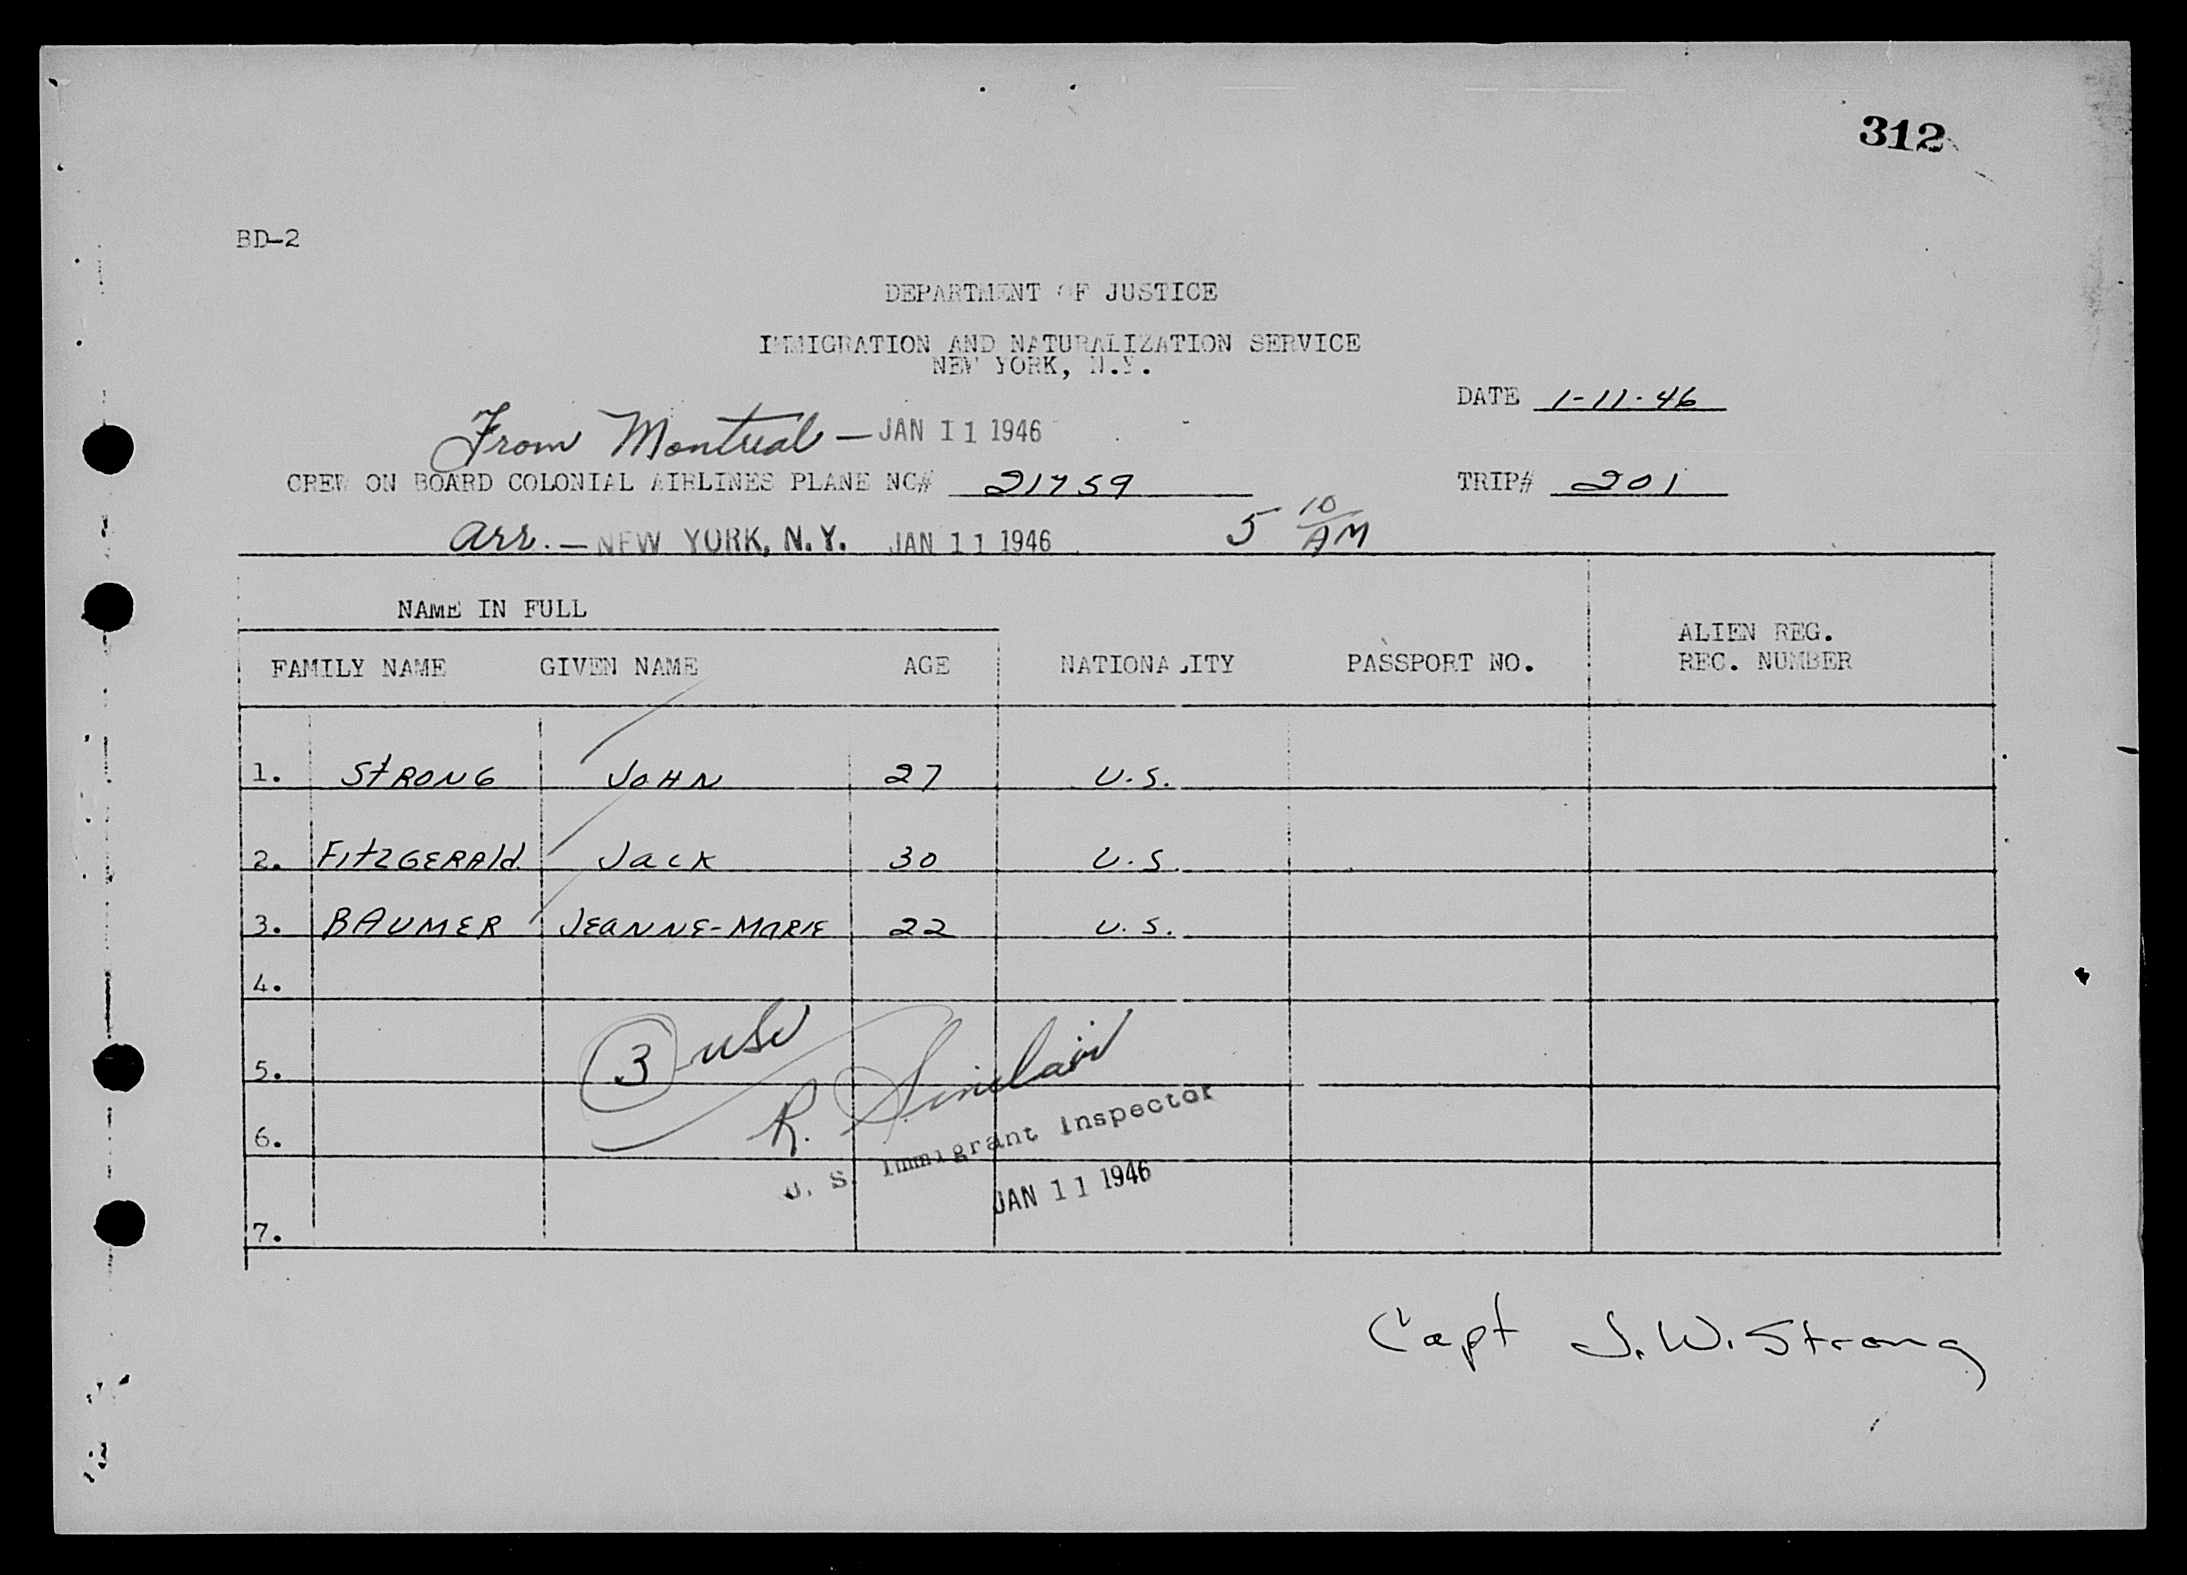 312
BD-2
DEPARTMENT OF JUSTICE
IMMIGRATION AND NATURALIZATION SERVICE
NEW YORK, N.Y.
DATE 1-11-46
From Montreal — JAN 11 1946
CREW ON BOARD COLONIAL AIRLINES PLANE NC# 21759 TRIP# 201
Arr. — NEW YORK, N.Y. JAN 11 1946 5 10 AM
NAME IN FULL
FAMILY NAME GIVEN NAME AGE NATIONALITY PASSPORT NO. ALIEN REG. REC. NUMBER
1. STRONG JOHN 27 U.S.
2. FITZGERALD JACK 30 U.S.
3. BAUMER JEANNE-MARIE 22 U.S.
4.
3 usc
5.
R. Sinclair
6.
U. S. Immigrant Inspector
JAN 11 1946
7.
Capt J.W. Strong